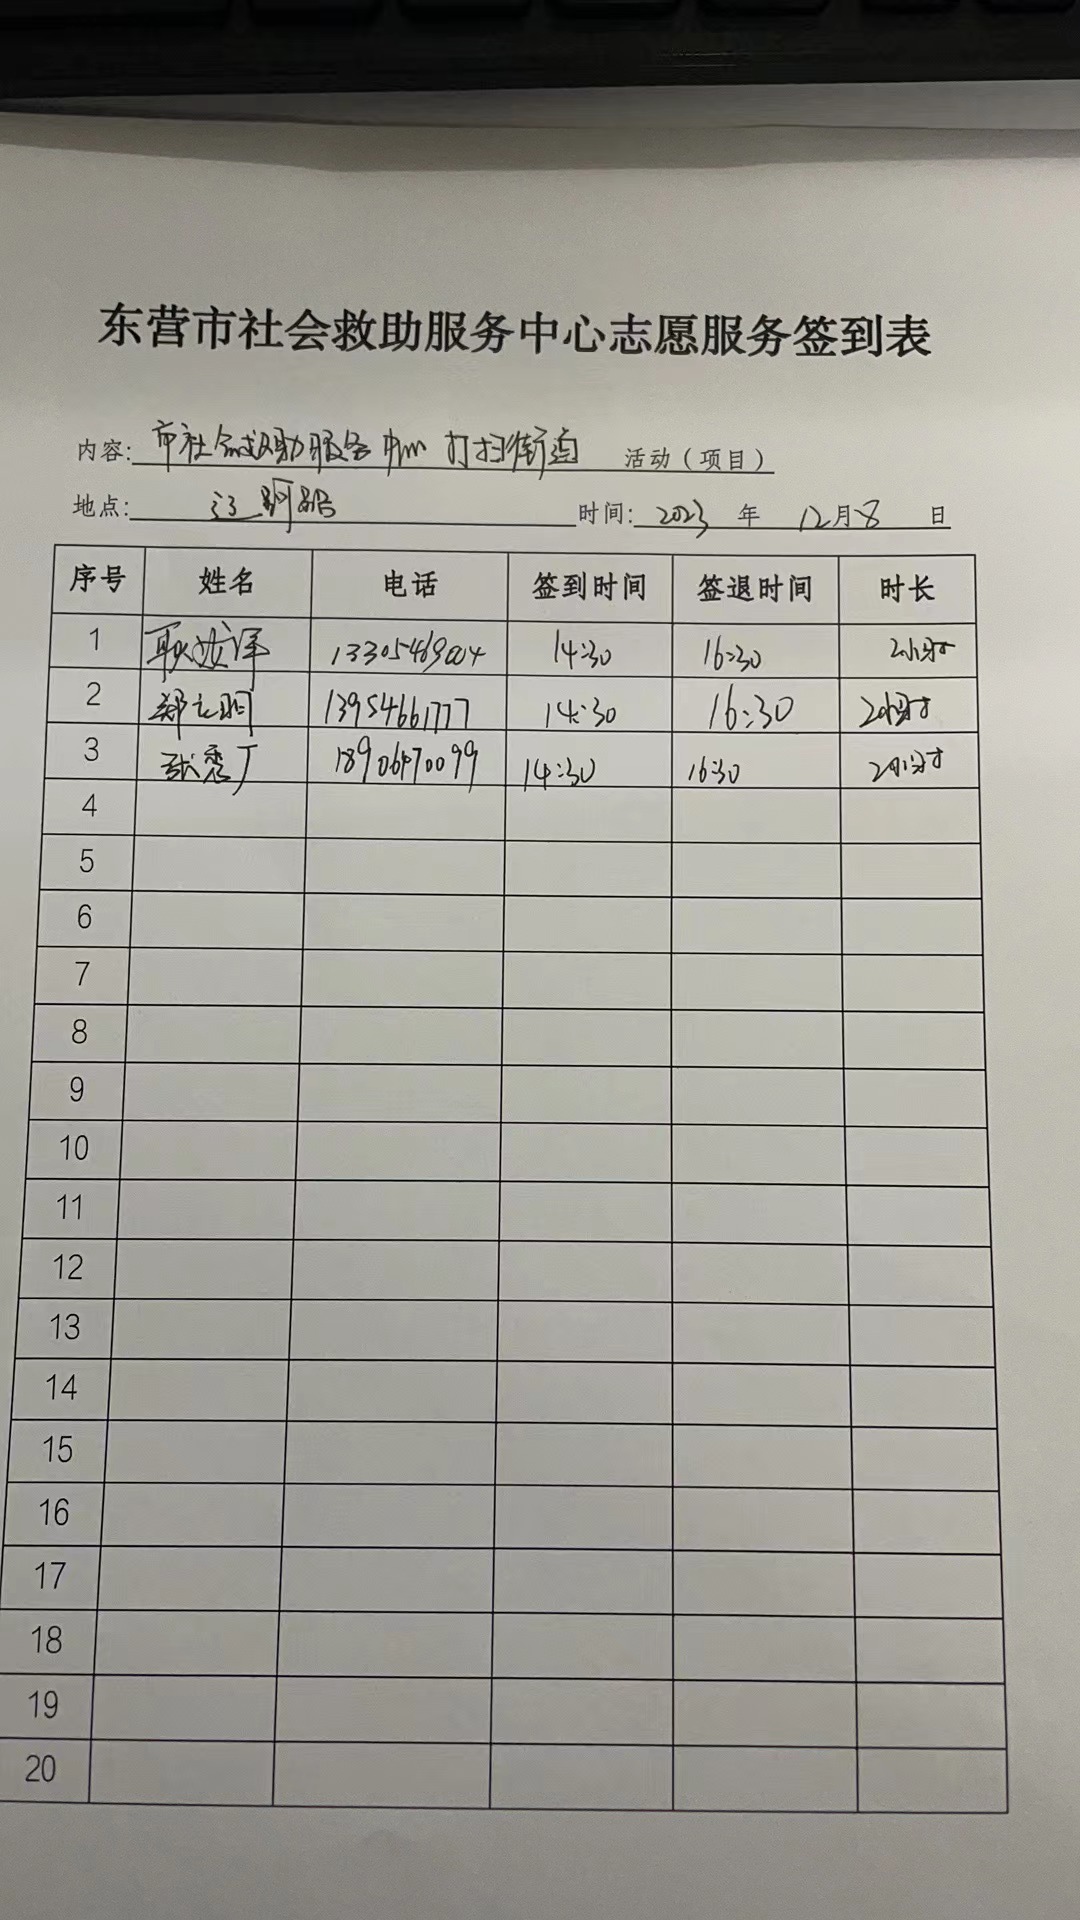 东营市社会救助服务中心志愿服务签到表
内容: 市社会救助服务中心 打扫街道 活动（项目）
地点: 辽河路 时间: 2023 年 12月8 日
序号 姓名 电话 签到时间 签退时间 时长
1 13305469004 14:30 16:30 2小时
2 13954661777 14:30 16:30 2小时
3 张秀厂 18906470099 14:30 16:30 2小时
4
5
6
7
8
9
10
11
12
13
14
15
16
17
18
19
20